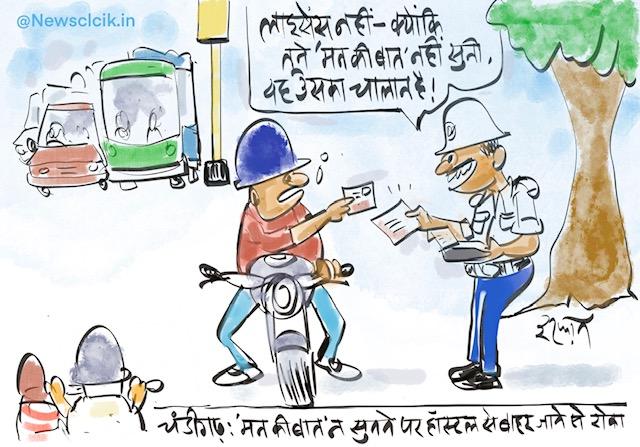 @Newsclcik.in
लाइसेंस नहीं - क्योंकि
तूने 'मन की बात' नहीं सुनी,
यह उसका चालान है!
इरफ़ान
चंडीगढ़: 'मन की बात' न सुनने पर हॉस्टल से बाहर जाने से रोका